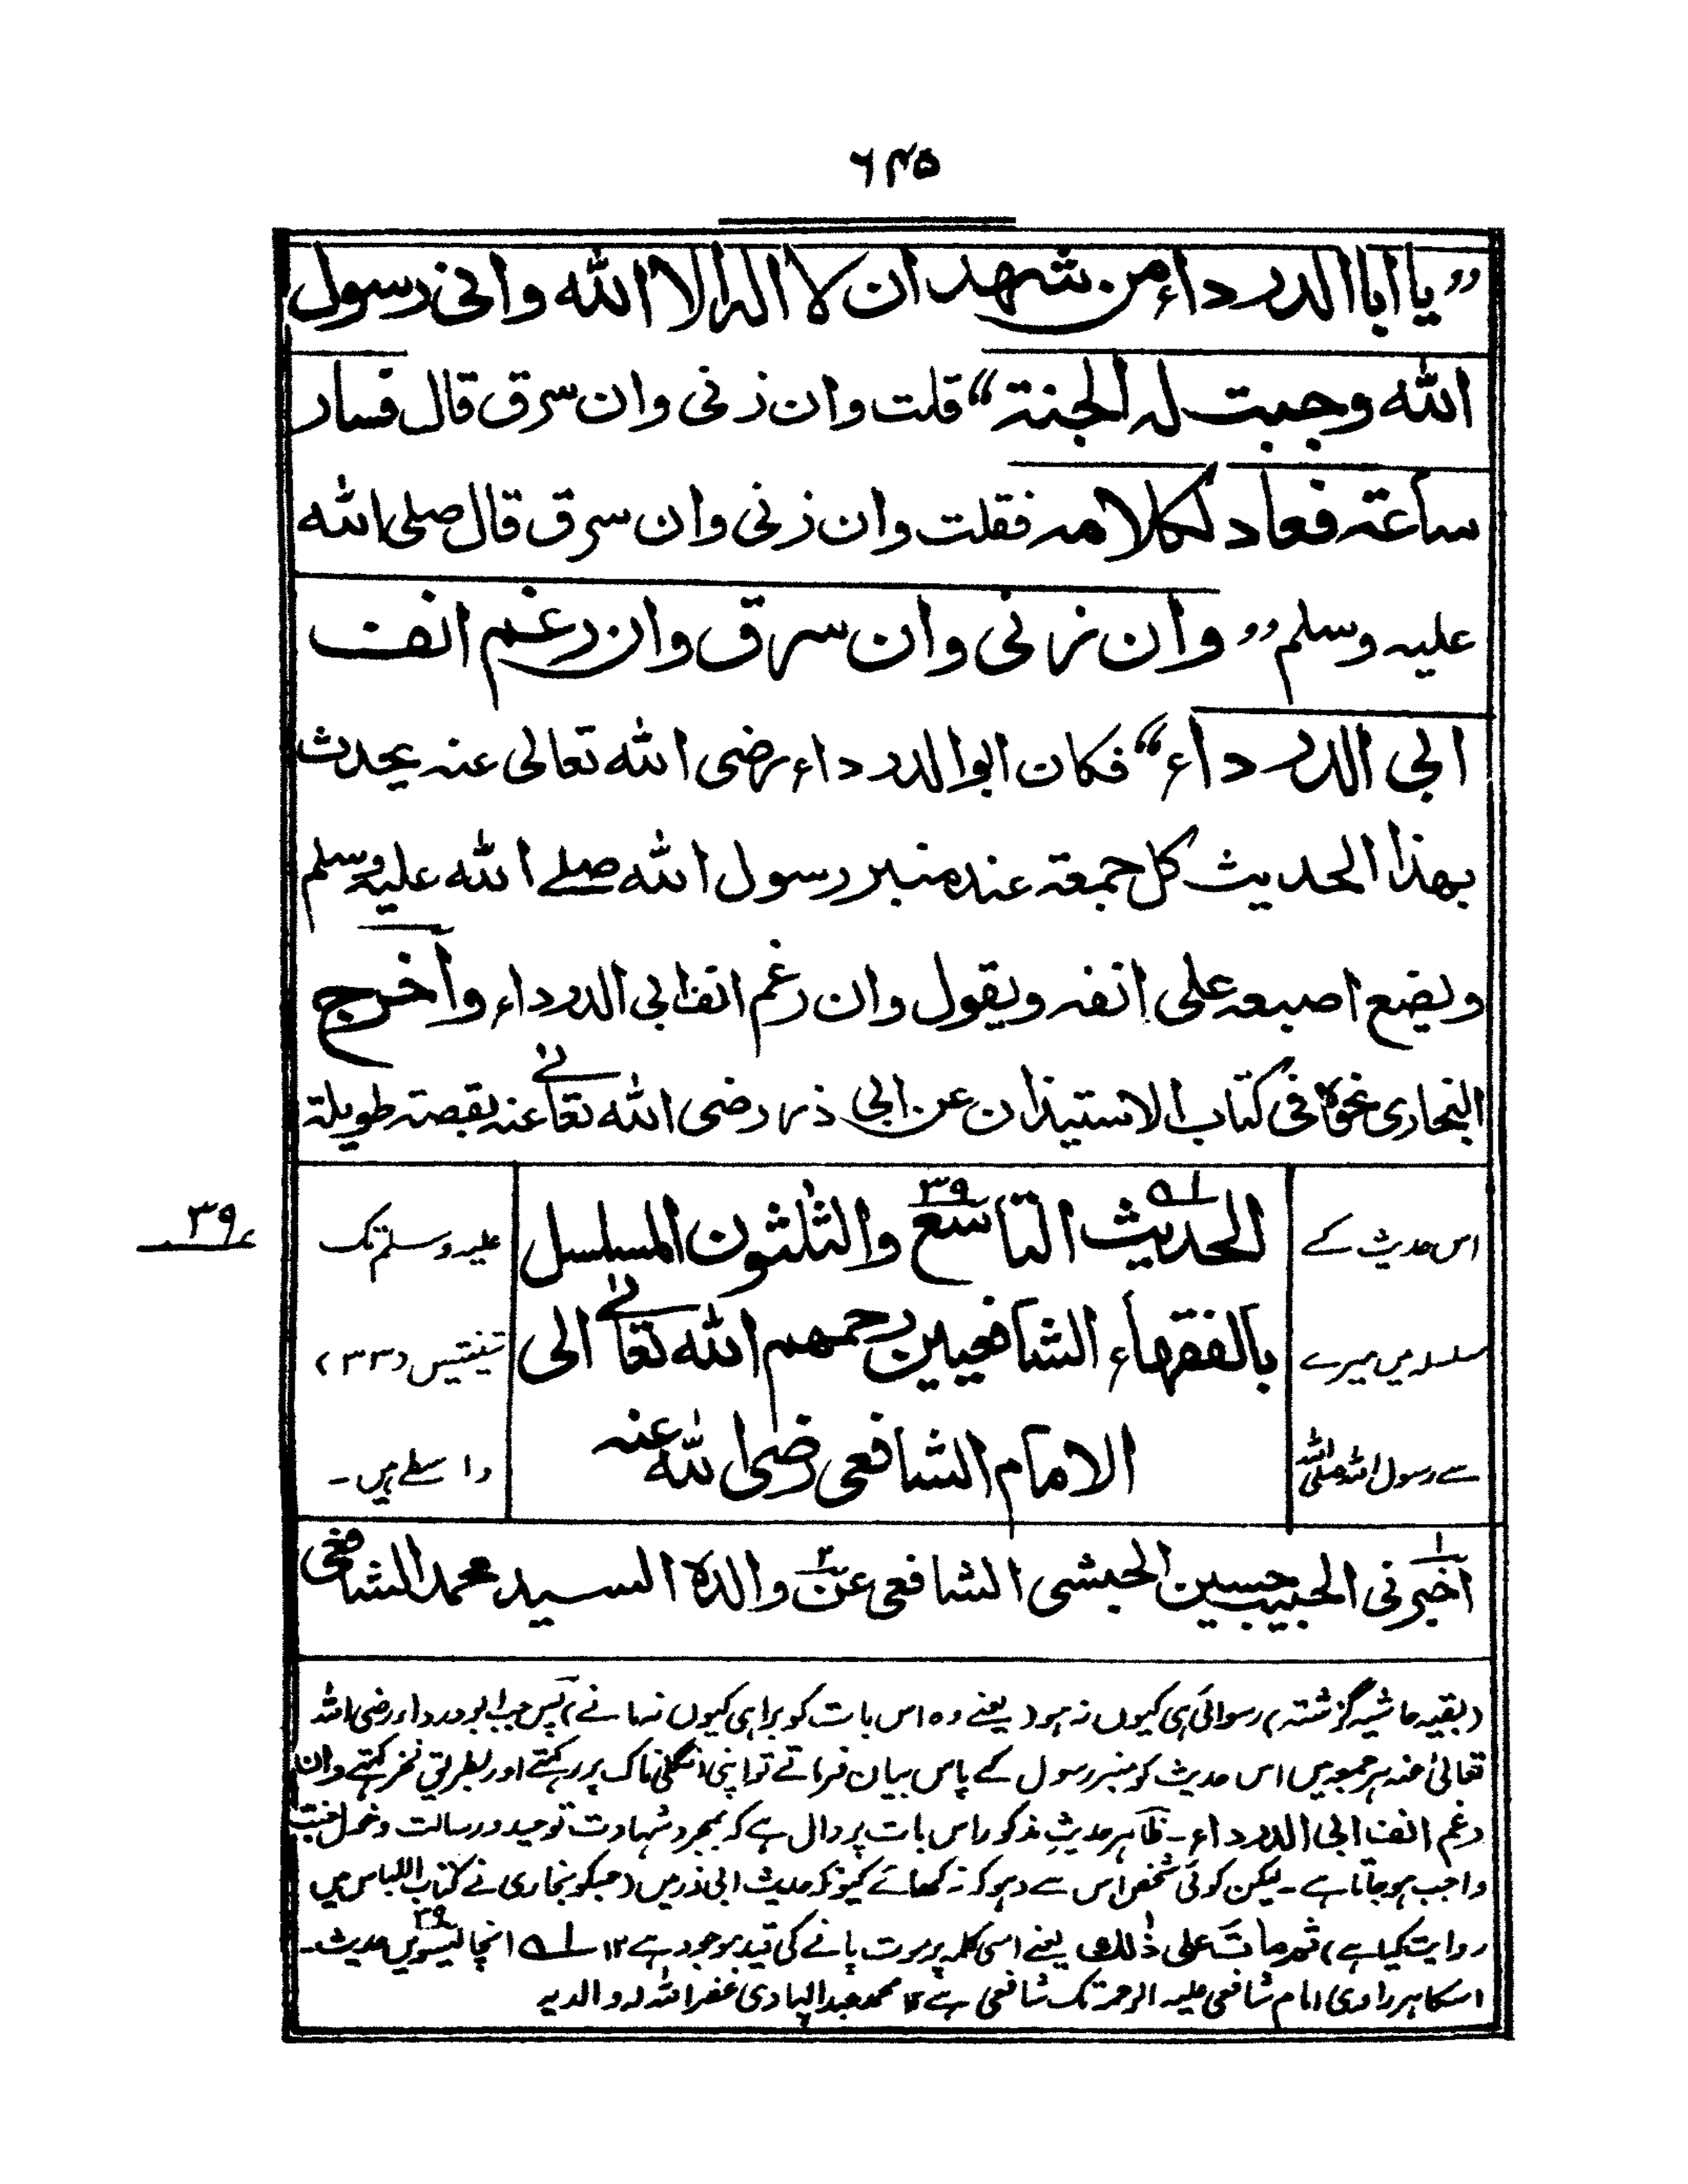 ۶۴۵
”یا ابا الدرداء من شهد ان لا اله الا الله وانی رسول
الله وجبت له الجنة“ قلت وان زنی وان سرق قال فسار
ساعته فعاد لکلامه فقلت وان زنی وان سرق قال صلی الله
علیه وسلم ”وان زنی وان سرق وان رغم انف
ابی الدرداء“ فکان ابو الدرداء رضی الله تعالی عنه یحدث
بهذا الحدیث کل جمعة عند منبر رسول الله صلے الله علیه وسلم
ویضع اصبعه علی انفه ویقول وان رغم انف ابی الدرداء واخرج
البخاری نحوه فی کتاب الاستیذان عن ابی ذر رضی الله تعالے عنه بقصة طویلة
۳۹
الحدیث التاسع والثلثون المسلسل
بالفقهاء الشافعیین رحمهم الله تعالے الی
الامام الشافعی رضی الله عنه
اس حدیث کے
سلسلہ میں میرے
سے رسول اللہ صلی اللہ
علیہ وسلم تک
تینتیس (۳۳)
واسطے ہیں۔
اخبرنی الحبیب حسین الحبشی الشافعی عن والده السید محمد الشافعی
(بقیہ حاشیہ گزشتہ) رسوائی ہی کیوں نہ ہو (یعنے وہ اس بات کو برا ہی کیوں نہ مانے) پس جب ابو درداء رضی اللہ
تعالیٰ عنہ ہر جمعہ میں اس حدیث کو منبر رسول کے پاس بیان فرماتے تو اپنی انگلی ناک پر رکہتے اور بطریق فخر کہتے وان
رغم انف ابی الدرداء۔ ظاہر حدیثِ مذکور اس بات پر دال ہے کہ بمجرد شہادت توحید ورسالت دخول جنت
واجب ہوجاتا ہے۔ لیکن کوئی شخص اس سے دہوکہ نہ کھائے کیونکہ حدیث ابی ذر میں (جسکو بخاری نے کتاب اللباس میں
روایت کیا ہے) ثم مات علی ذٰلک یعنے اسی کلمہ پر موت پانے کی قید موجود ہے ۱۲ ؎۱ انچالیسویں ۳۹ حدیث۔
اسکا ہر راوی امام شافعی علیہ الرحمۃ تک شافعی ہے ۱۲ محمد عبد الہادی غفر اللہ لہ والدیہ